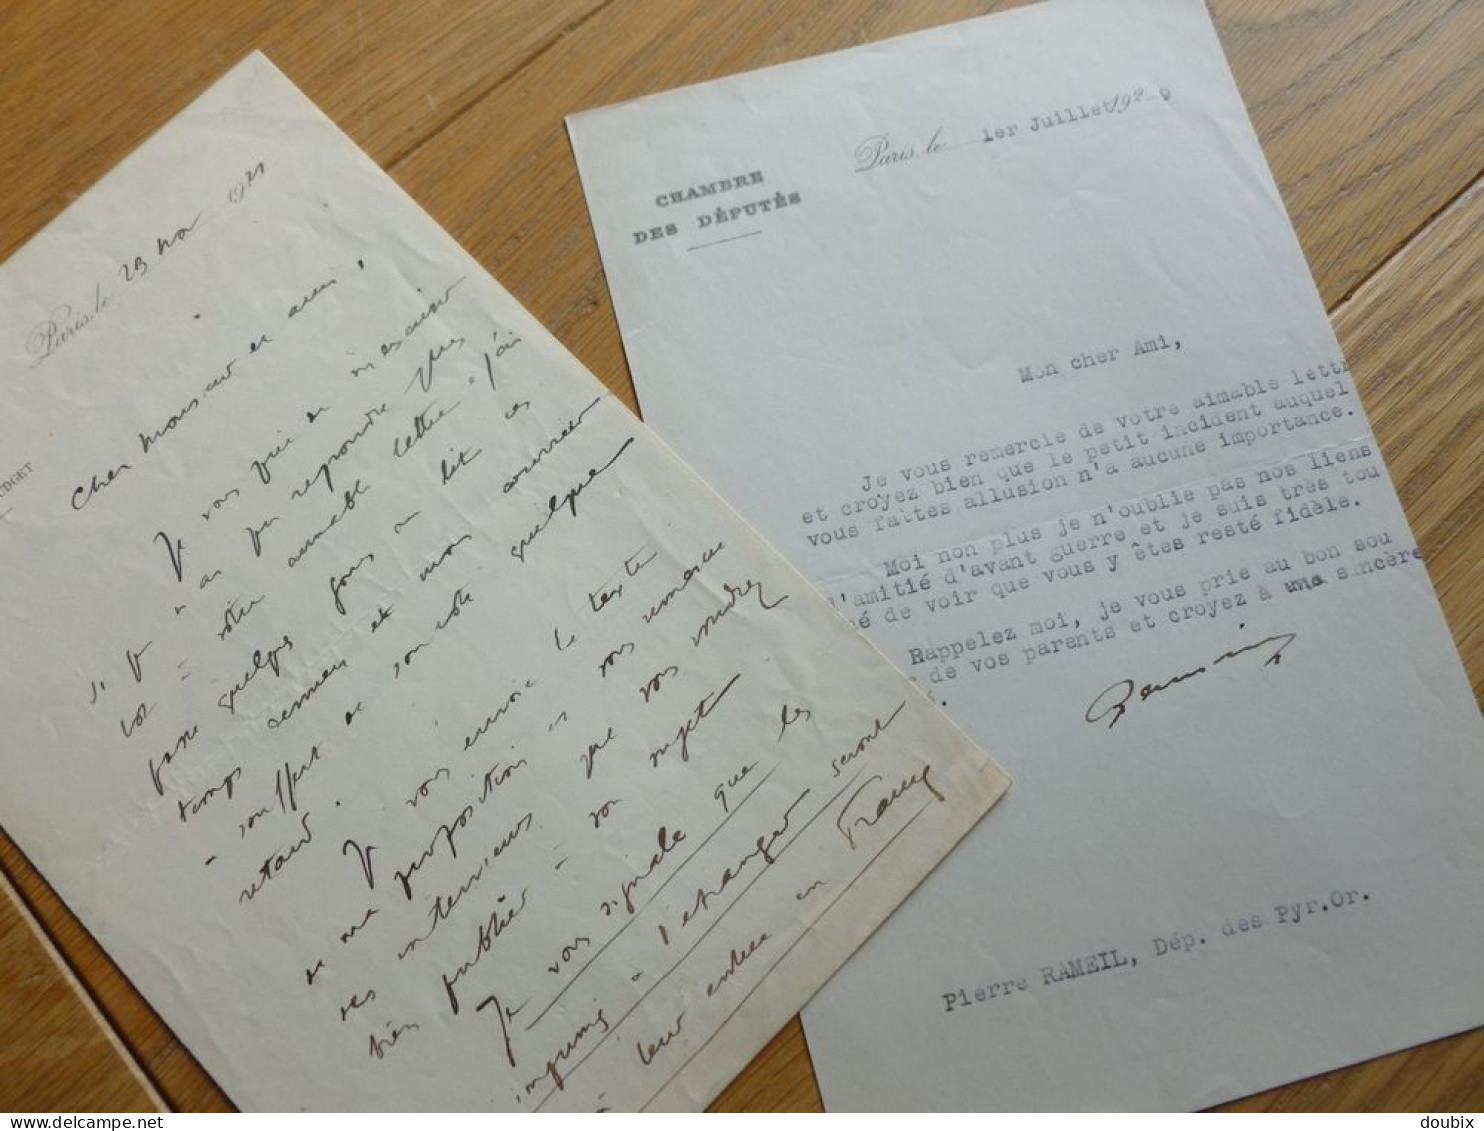 Paris, le 23 nov 1921
UDGET
Cher Monsieur et ami,
Je vous prie de m'excuser
si je n'ai pu répondre plus
tôt = votre aimable lettre. J'ai
passé quelques jours au lit ces
temps derniers et mon courrier
a souffert de son côté quelque
retard.
Je vous envoie le texte
de ma proposition et vous remercie
des interviews que vous voudrez
bien publier = son sujet
Je vous signale que les
imprimés à l'étranger seront
à leur entrée en France
CHAMBRE
DES DÉPUTÉS
Paris, le 1er Juillet 192 9
Mon cher Ami,
Je vous remercie de votre aimable lettr
et croyez bien que le petit incident auquel
vous faites allusion n'a aucune importance.
Moi non plus je n'oublie pas nos liens
d'amitié d'avant guerre et je suis très tou
hé de voir que vous y êtes resté fidèle.
Rappelez moi, je vous prie au bon sou
de vos parents et croyez à une sincère
Pierre RAMEIL, Dép. des Pyr.Or.
doubix